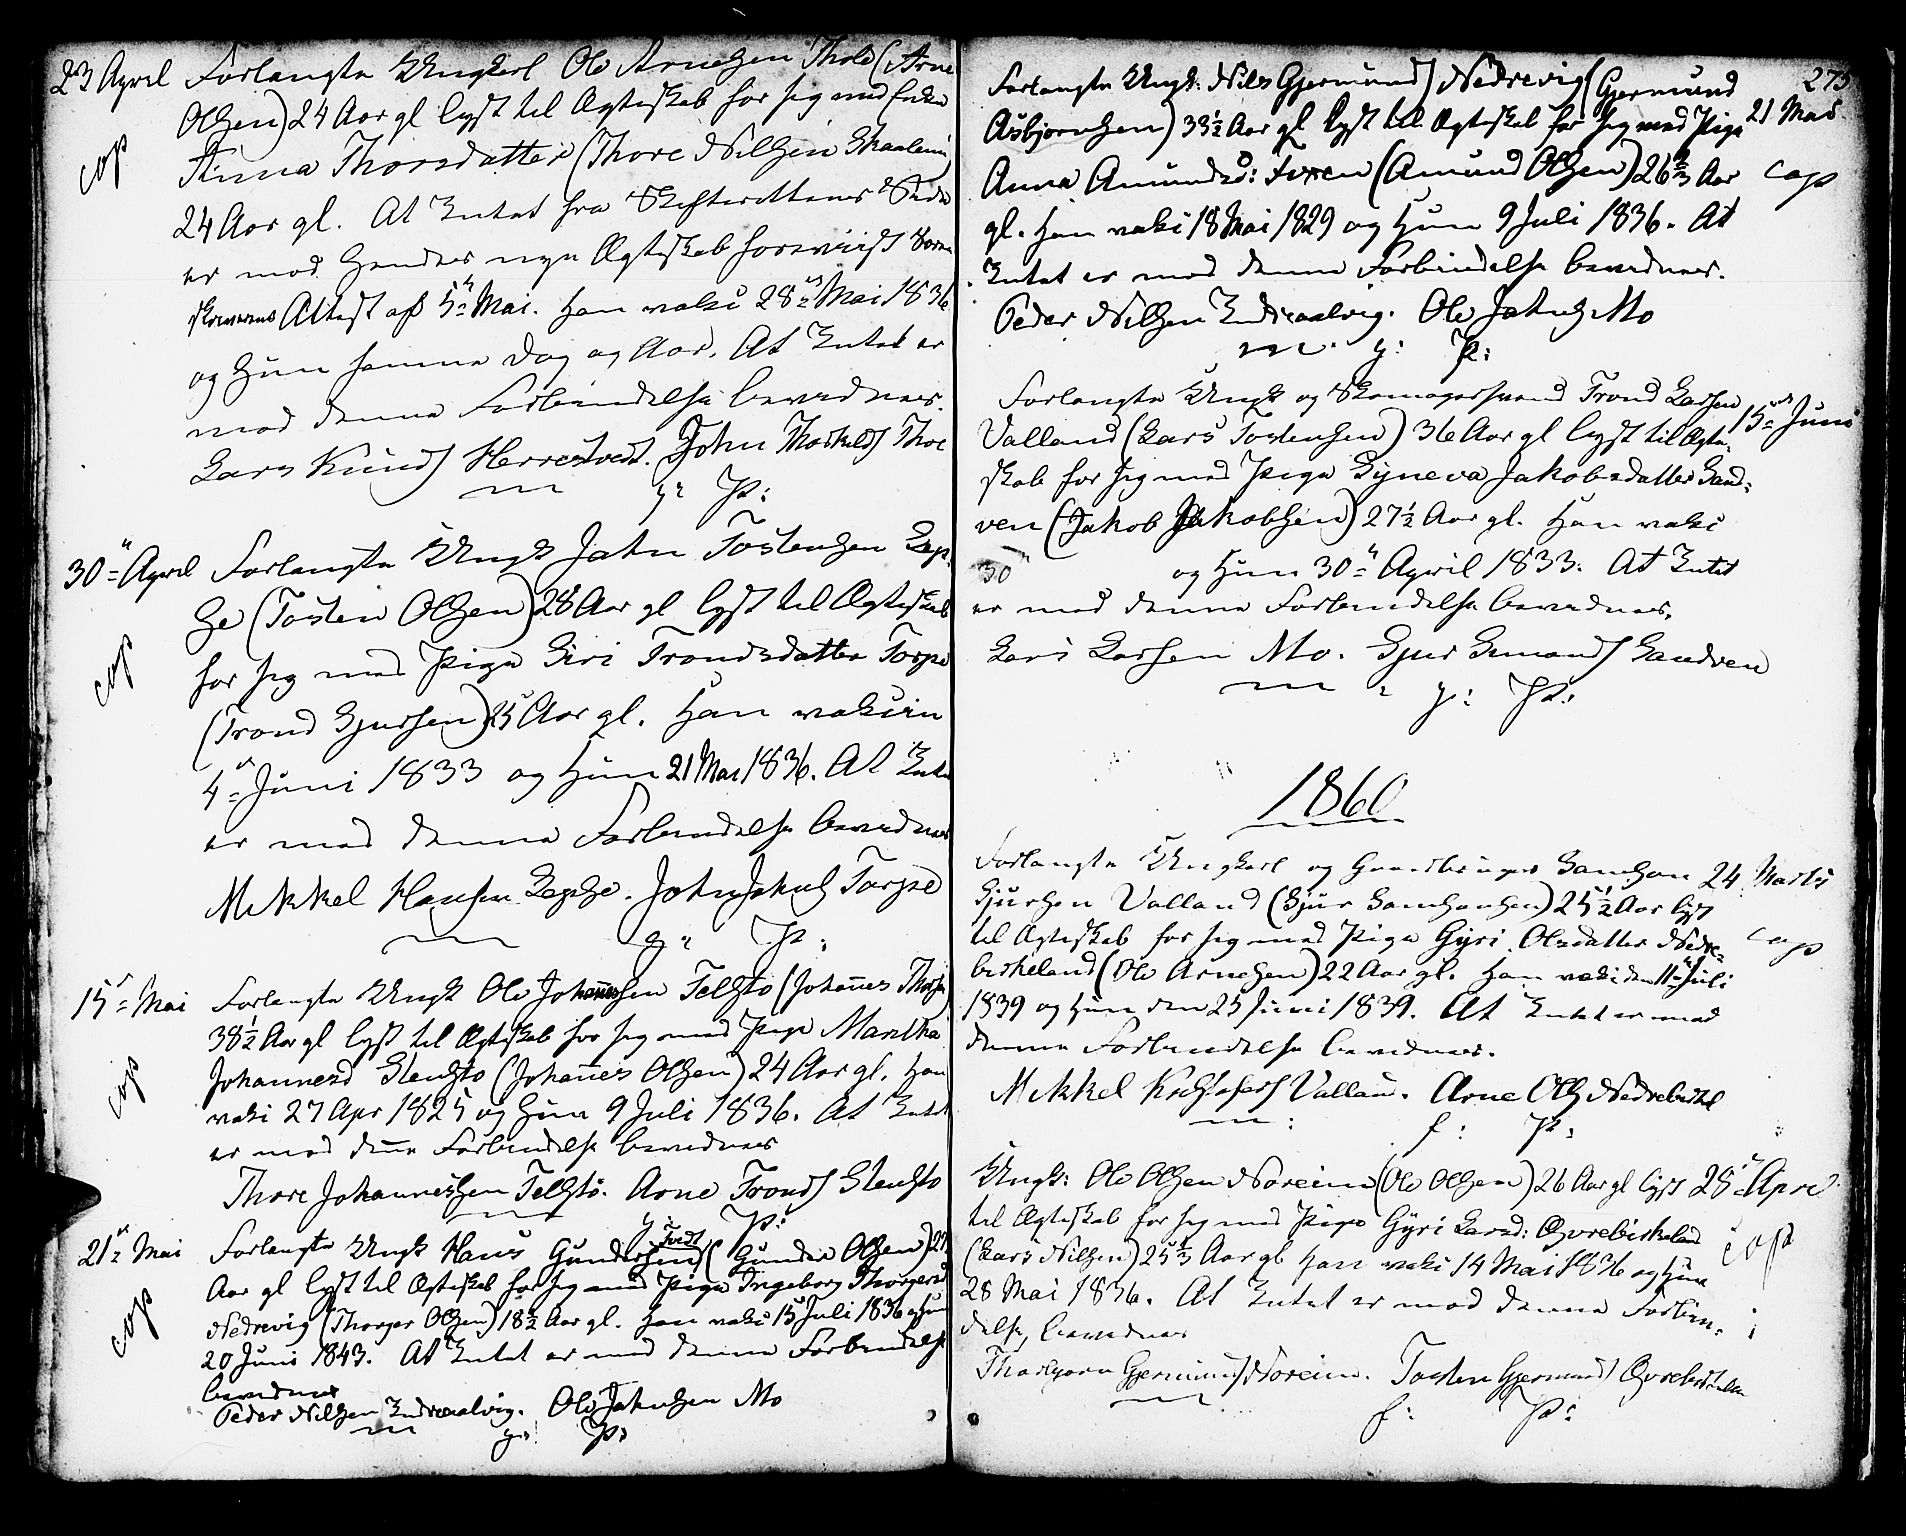 23 April Forlangte Ungkarl Ole Arnesen Thoe (Arne
Olsen) 24 Aar gl lyst til Ægteskab for sig med Enken
cop
Anna Thorsdatter (Thore Nilsen Skaalem
24 Aar gl. At Intet fra Skifterettens Side
er mod hendes nye Ægteskab foreviist Soren
skrivernes Attest af 5te Mai. Han vakc 28de Mai 1836
og Hun samme Dag og Aar. At Intet er
mod denne Forbindelse bevidnes.
Lars Knuds Herrestvedt. John Thorkelds Thoe
m g: P:
30te April Forlangte Ungk John Tostensen Lep
se (Tosten Olsen) 28 Aar gl lyst til Ægteskab
cop
for sig med Pige Siri Trondsdatter Torpe
(Trond Gjursen) 25 Aar gl. Han vakcin
4de Juni 1833 og Hun 21 Mai 1836. At Intet
er mod denne Forbindelse bevidnes
Mikkel Hansen Lepse. John Johns Torpe
g: P:
15de Mai Forlangte Ungk Ole Johannessen Telsto (Johannes Thorsen
38½ Aar gl lyst til Ægteskab for sig med Pige Martha
cop
Johannesd Stensto (Johannes Olsen) 24 Aar gl. Han
vakc 27 Apr 1825 og Hun 9 Juli 1836. At Intet
er mod denne Forbindelse bevidnes
Thore Johannessen Telsto. Arne Tronds Stensto
g: P:
21de Mai Forlangte Ungk Hans Gundersen Tvedt (Gunder Olsen) 27
Aar gl lyst til Ægteskab for sig med Pige Ingeborg Thorgersd
cop
Nedrevig (Thorger Olsen) 18½ Aar gl. Han vakc 15 Juli 1836 og Hun
20 Juni 1843. At Intet er mod denne Forbindelse
bevidnes
Peder Nilsen Indreaalvig. Ole Johnsen Mo
m g: P:
275
Forlangte Ungk: Nils Gjermunds Nedrevig (Gjermund
Asbjørnsen) 33½ Aar gl lyst til Ægteskab for sig med Pige 21 Mai
Anna Amundsd: (Amund Olsen) 26⅔ Aar cop
gl. Han vakc 18 Mai 1829 og Hun 9 Juli 1836. At
Intet er mod denne Forbindelse bevidnes.
Peder Nilsen Indreaalvig. Ole Johns Mo
m. g: P:
Forlangte Ungk og Skomagersvend Trond Larsen
Valland (Lars Tostensen) 36 Aar gl lyst til Ægte- 15de Juni
skab for sig med Pige Synneva Jakobsdatter Sand-
ven (Jakob Jakobsen) 27½ Aar gl. Han vakc
30 og Hun 30te April 1833. At Intet
er mod denne Forbindelse bevidnes.
Lars Larsen Mo. Gjur Samands Sandven
m g: P:
1860
Forlangte Ungkarl og Gaardbruger Samson 24 Marts
Gjursen Valland (Gjur Samsonsen) 25½ Aar lyst
til Ægteskab for sig med Pige Gyri Olsdatter Nedre- cop
birkeland (Ole Arnesen) 22 Aar gl. Han vakc den 11te Juli
1839 og Hun den 25 Juni 1839. At Intet er mod
denne Forbindelse bevidnes.
Mikkel Valland. Arne Ols Nedrebirkel
m: f: P:
Ungk: Ole Olsen Noreim (Ole Olsen) 26 Aar gl lyst 28de April
til Ægteskab for sig med Pige Gyri Larsd: Øvrebirkeland
(Lars Nilsen) 25⅔ Aar gl Han vakc 14 Mai 1836 og Hun cop
28 Mai 1836. At Intet er mod denne Forbin-
delse, bevidnes
Thorbjørn Gjermunds Noreim. Tosten Gjermunds Øvrebirkeland
f: P: